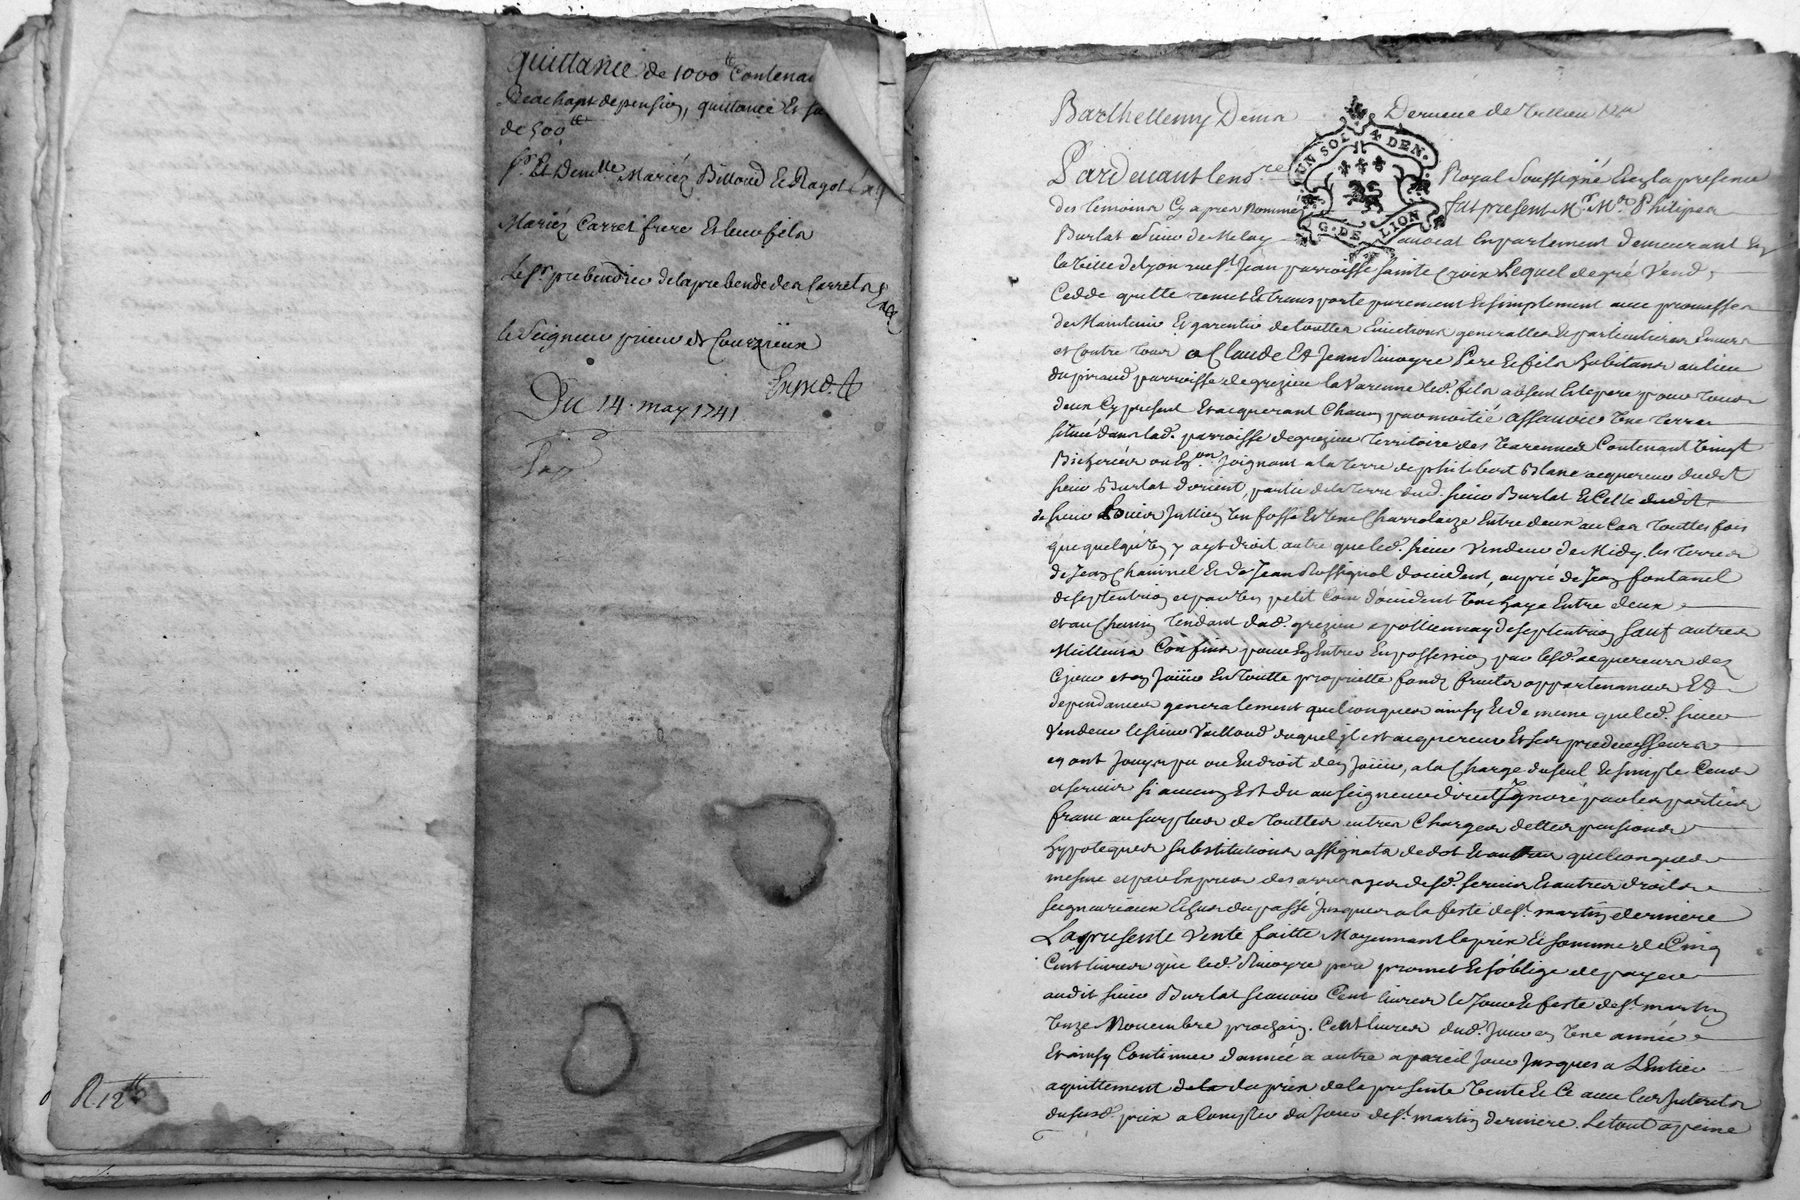 quittance de 1000 ₶ Contena
Reachapt de pension, quittance Et
de 500 ₶
Sr. Et Demlle Mariéz Billoud Et Ragot
Mariéz Carret frere Et leur fils
Le Sr. prebendier de la prebende des Carrets
le Seigneur prieur de Courzieux
Du 14. may 1741
R 12 ₶
Barthellemy
UN SOL 4 DEN.
G. DE LION
Pardeuant le no.re Royal Soussigné Et en la presence
des temoins Cy apres Nommés fut present Mr. Me. Philipes
Burlat Sieur de Melay auocat En parlement demeurant En
la Ville de Lyon rue St. Jean parroisse Sainte Croix Lequel de gré Vend,
Cedde quitte remet Et transporte purement Et simplement auec promesses
de Maintenir Et garentir de touttes Euictions generalles Et particulieres Enuers
et Contre tous a Claude Et Jean Pere Et fils habitans au lieu
du parroisse de grezieu la Varenne led. fils absent Et le pere pour tous
deux Cy present Et acquerant Chacun par moitié assauoir Une terre
situé dans lad. parroisse de grezieu territoire des Varennes Contenant Vingt
Bicherées ou En.on Joignant a la terre de philibert Blanc acquereur dudit
sieur Burlat d'orient, partie de la terre dud. sieur Burlat Et Celle dudit
de sieur Jullien Un fossé Et Une Charrolaize Entre deux au Cas touttes fois
que quelqu'Un y ayt droit autre que led. sieur Vendeur de Midy. les terres
de Jean Et de Jean Rossignol d'occident, au pré de Jean fontanel
de septentrion et par Un petit Coin d'occident Une haye Entre deux
et au Chemin tendant dud. grezieu a pollionnay de septentrion sauf autres
Meilleurs Confins pour En Entrer En possession par lesd. acquereurs des
Ce jour et en Joüir En toutte proprietté fondz fruits appartenances Et
dependances generalement quelconques ainsy Et de meme que led. sieur
Vendeur le sieur Vailloud duquel jl est acquereur Et ses predecesseurs
en ont Jouy ou pu ou En droit d'En Joüir, a la Charge du seul Et simple Cens
et seruis si aucun Est du au seigneur direct Jgnoré par les parties
franc au surplus de touttes autres Charges dettes pensions
hypoteques substitutions assignats de dot Et autres quelconques
mesme et par Exprès des arrerages desd. seruis Et autres droits
seigneuriaux Echus du passé Jusques a la feste de St. martin derniere
La presente Vente faitte Moyennant le prix Et somme de Cinq
Cent liures que led. pere promet Et s'oblige de payer
audit sieur Burlat scauoir Cent liures le Jour Et feste de St. martin
Unze Nouembre prochain. Cent liures dud. Jour en Une année
Et ainsy Continuer d'année a autre a pareil Jour Jusques a L'Entier
aquittement du prix de la presente Vente Et Ce auec les Jnterets
dususd. prix a Compter du Jour de St. martin derniere. Le tout a peine